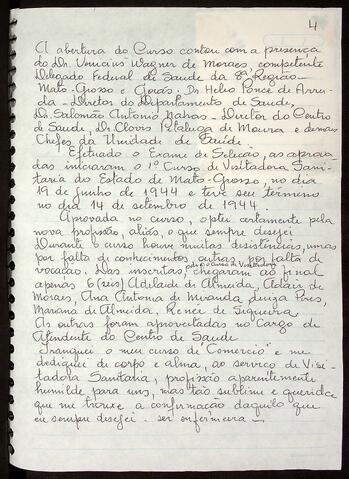 4
A abertura do Curso contou com a presença
do Dr. Vinicius Wagner de Moraes, competente
Delegado Federal de Saude da 8ª Região-
Mato-Grosso e Goiás - Dr Helio Ponce de Arru-
da - Diretor do Departamento de Saude,
Dr. Salomão Antonio Nahas - Diretor do Centro
de Saude, Dr. Clovis Pitaluga de Moura e demais
Chefes da Unidade de Saude.
Efetuado o Exame de Seleção, as aprova
das iniciaram o 1º Curso de Visitadora Sani-
taria do Estado de Mato-Grosso, no dia
19 de junho de 1944 e teve seu término
no dia 14 de setembro de 1944.
Aprovada no curso, optei certamente pela
nova profissão, aliás, o que sempre desejei
Durante o curso houve muitas desistências, umas
por falta de conhecimentos outras por falta de
vocação. Das inscritas, chegaram ao final
apenas 6 (seis) Adelaide de Almeida, Adair de
Moraes, Ana Antonia de Miranda, Luiza Pires,
Mariana de Almeida, Renée de Siqueira.
As outras foram aproveitadas no Cargo de
Atendente do Centro de Saude
Tranquei o meu curso de "Comercio" e me
dediquei de corpo e alma, ao serviço de Visi-
tadora Sanitaria, profissão aparentemente
humilde para uns, mas tão sublime e querida
que me trouxe a confirmação daquilo que
eu sempre desejei - ser enfermeira -